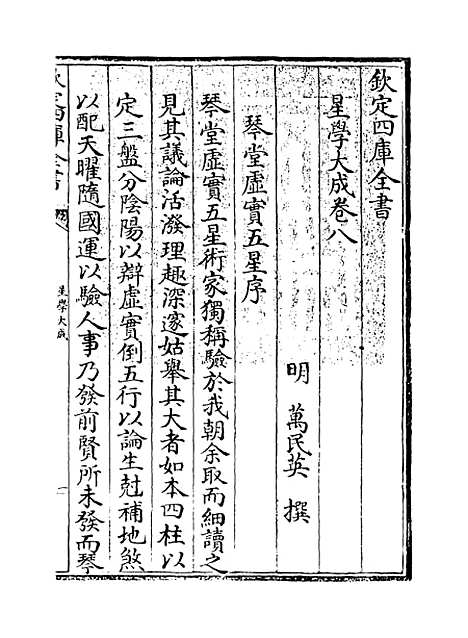 欽定四庫全書
星學大成卷八
明 萬民英 撰
琴堂虛實五星序
琴堂虛實五星術家獨稱驗於我朝余取而細讀之
見其議論活潑理趣深邃姑舉其大者如本四柱以
定三盤分陰陽以辯虛實倒五行以論生尅補地煞
以配天曜隨國運以驗人事乃發前賢所未發而琴
欽定四庫全書
星學大成
一